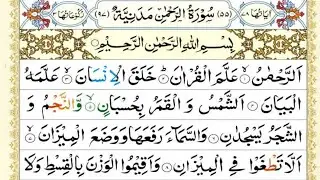 اٰیاتها ٧٨ (٥٥) سُوْرَةُ الرَّحْمٰنِ مَدَنِيَّةٌ (٩٧) رکوعاتها ٣
بِسْمِ اللّٰهِ الرَّحْمٰنِ الرَّحِيْمِ
اَلرَّحْمٰنُ ۙ عَلَّمَ الْقُرْاٰنَ ؕ خَلَقَ الْاِنْسَانَ ۙ عَلَّمَهُ
الْبَيَانَ ۚ اَلشَّمْسُ وَ الْقَمَرُ بِحُسْبَانٍ ۪ وَّالنَّجْمُ وَ
الشَّجَرُ يَسْجُدٰنِ ۚ وَالسَّمَآءَ رَفَعَهَا وَوَضَعَ الْمِيْزَانَ ۙ
اَلَّا تَطْغَوْا فِي الْمِيْزَانِ ۚ وَاَقِيْمُوا الْوَزْنَ بِالْقِسْطِ وَلَا